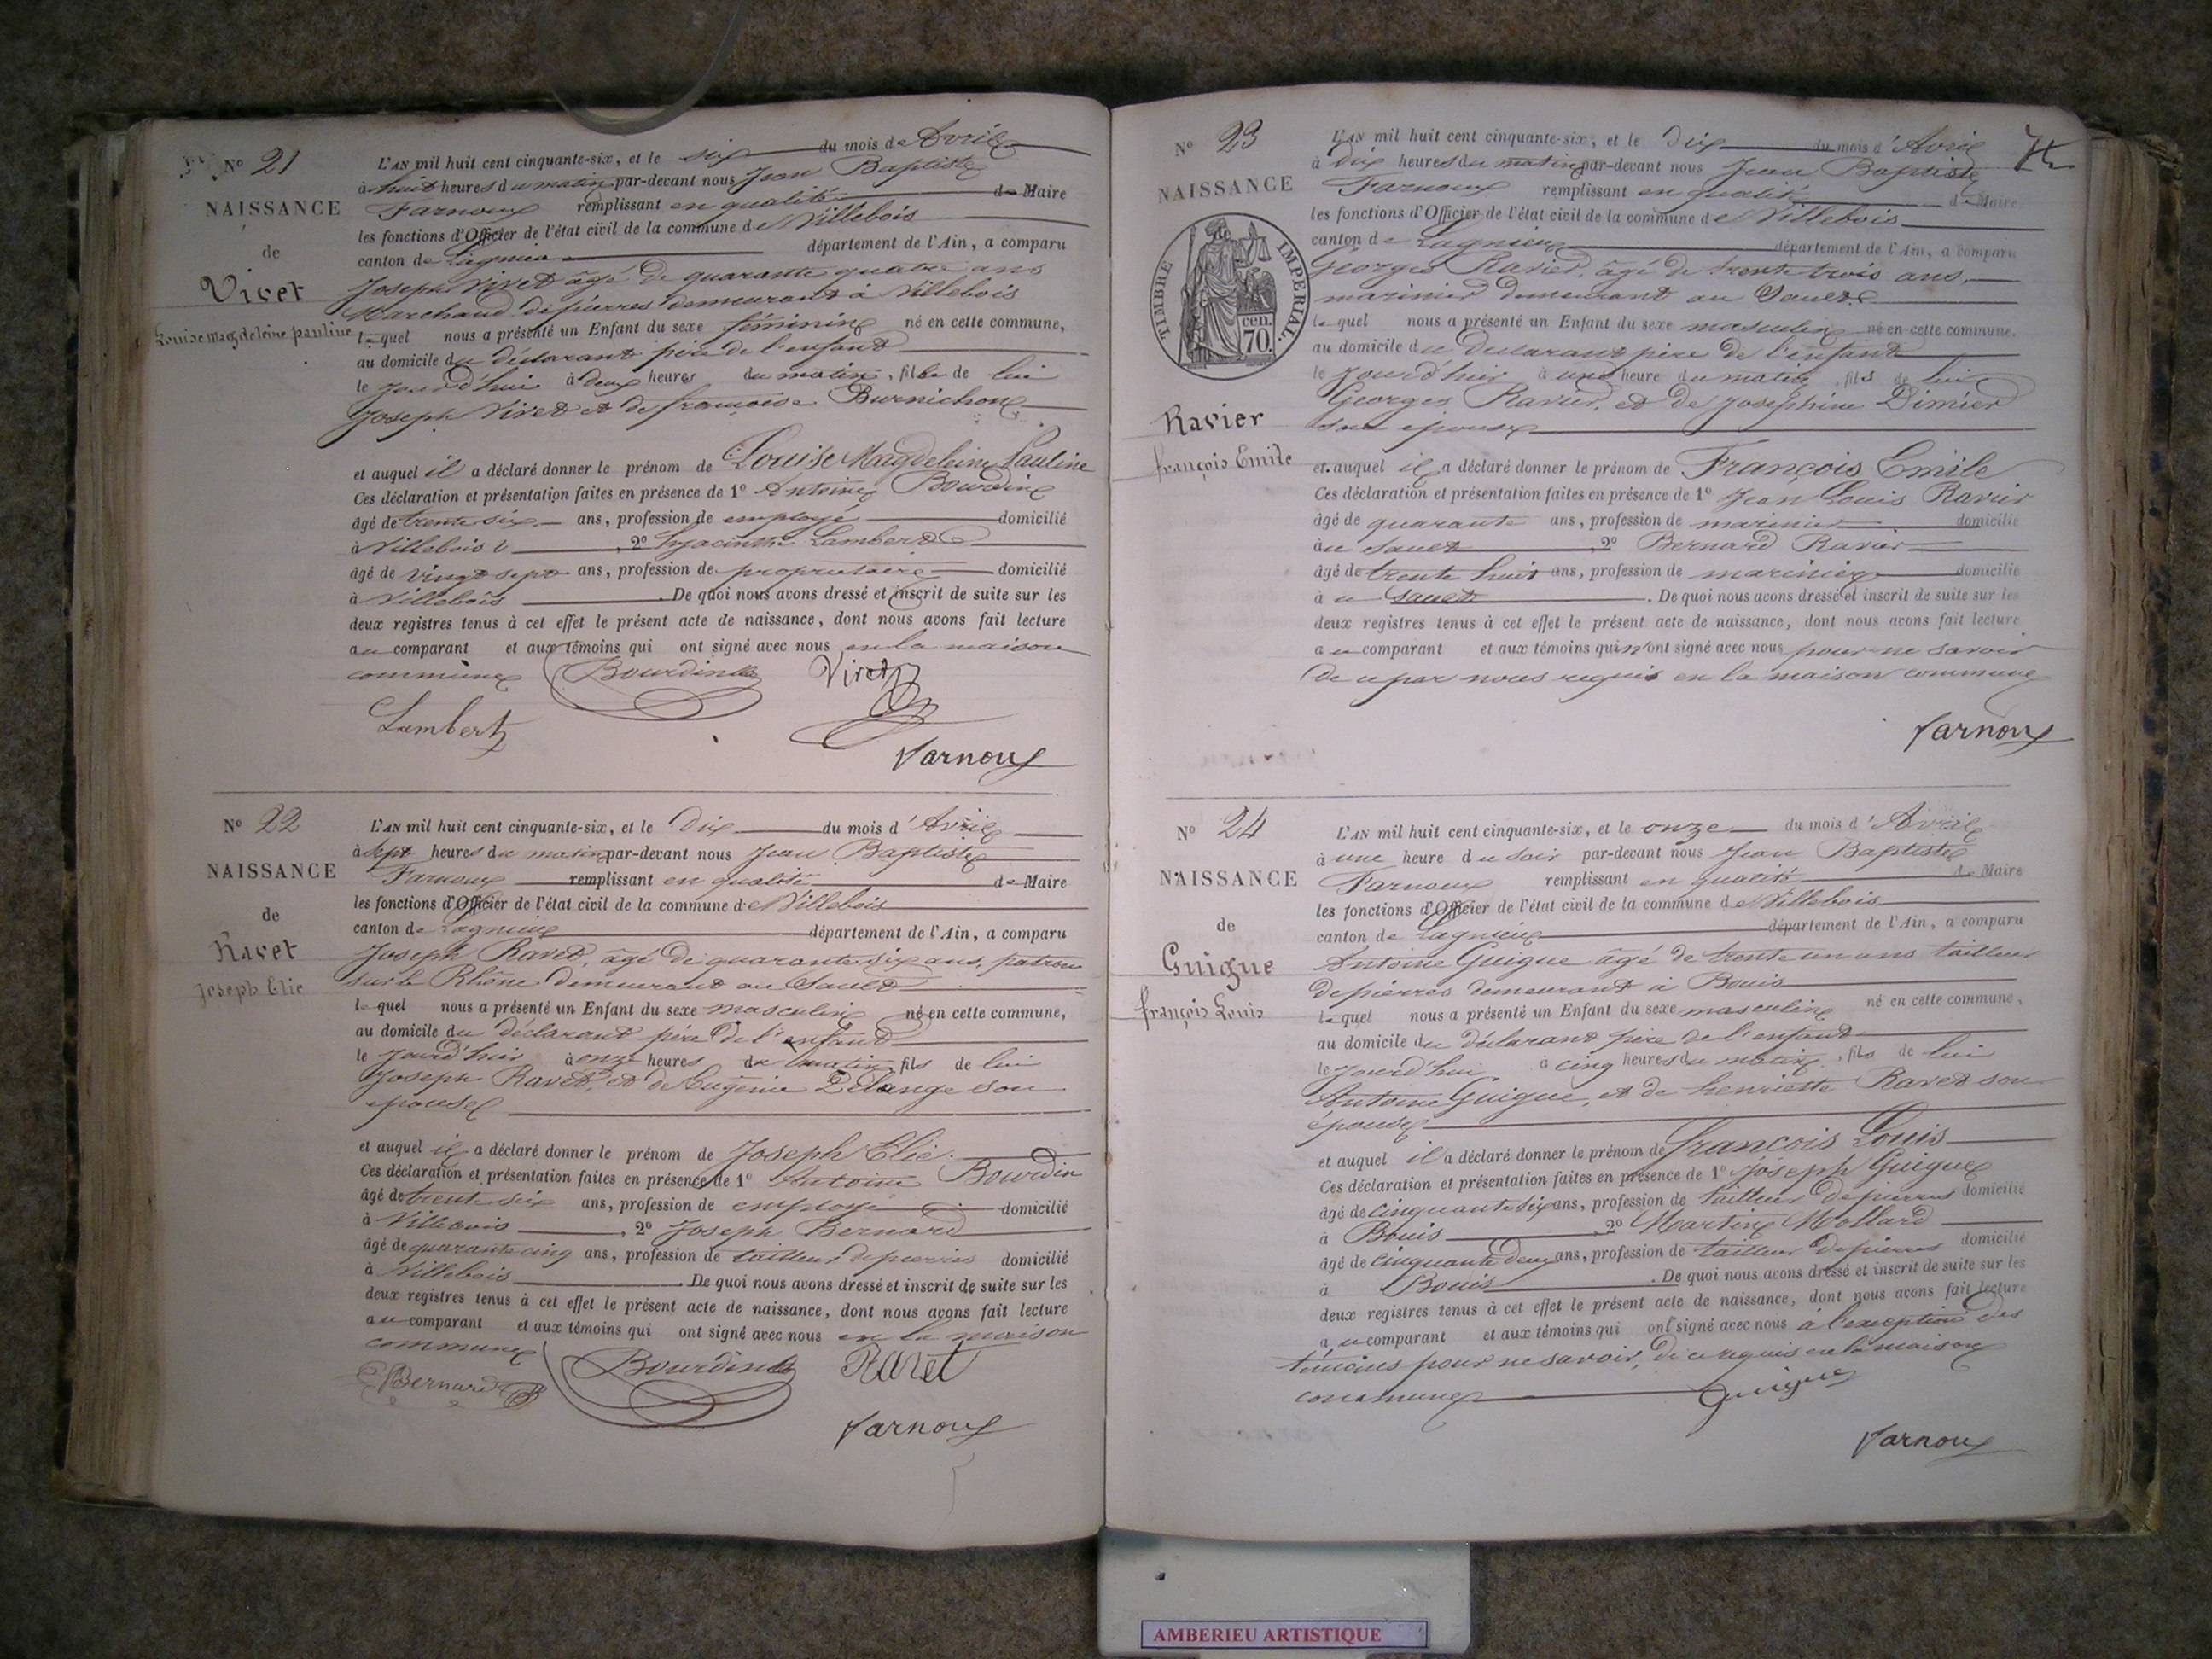 Nº 21
NAISSANCE
de
Viret
Louise Magdeleine pauline
L'AN mil huit cent cinquante-six, et le six du mois de Avril
à huit heures du matin par-devant nous Jean Baptiste
Farnoux remplissant en qualité de Maire
les fonctions d'Officier de l'état civil de la commune de Villebois
canton de Lagnieu département de l'Ain, a comparu
Joseph Viret âgé de quarante quatre ans
Marchand de pierres demeurant à Villebois
lequel nous a présenté un Enfant du sexe féminin né en cette commune,
au domicile du déclarant père de l'enfant
le jourd'hui à deux heures du matin, fille de lui
Joseph Viret et de françoise Burnichon
et auquel il a déclaré donner le prénom de Louise Magdeleine Pauline
Ces déclaration et présentation faites en présence de 1º Antoine Bourdin
âgé de trente six ans, profession de employé domicilié
à Villebois 2º hyacinthe Lambert
âgé de vingt sept ans, profession de propriétaire domicilié
à Villebois. De quoi nous avons dressé et inscrit de suite sur les
deux registres tenus à cet effet le présent acte de naissance, dont nous avons fait lecture
au comparant et aux témoins qui ont signé avec nous en la maison
commune Bourdin Viret
Lambert
Farnoux
Nº 22
NAISSANCE
de
Ravet
Joseph Elie
L'AN mil huit cent cinquante-six, et le dix du mois d'Avril
à sept heures du matin par-devant nous Jean Baptiste
Farnoux remplissant en qualité de Maire
les fonctions d'Officier de l'état civil de la commune de Villebois
canton de Lagnieu département de l'Ain, a comparu
Joseph Ravet, âgé de quarante six ans, patron
sur le Rhône demeurant au Sault
lequel nous a présenté un Enfant du sexe masculin né en cette commune,
au domicile du déclarant père de l'enfant
le jourd'hier à onze heures du matin fils de lui
Joseph Ravet, et de Eugénie Delange son
épouse
et auquel il a déclaré donner le prénom de Joseph Elie.
Ces déclaration et présentation faites en présence de 1º Antoine Bourdin
âgé de trente six ans, profession de employé domicilié
à Villebois, 2º Joseph Bernard
âgé de quarante cinq ans, profession de tailleur de pierres domicilié
à Villebois. De quoi nous avons dressé et inscrit de suite sur les
deux registres tenus à cet effet le présent acte de naissance, dont nous avons fait lecture
au comparant et aux témoins qui ont signé avec nous en la maison
commune Bourdin Ravet
Bernard
Farnoux
Nº 23
NAISSANCE
TIMBRE IMPERIAL.
cen.
70.
Ravier
françois Emile
L'AN mil huit cent cinquante-six, et le Dix du mois d'Avril
à dix heures du matin par-devant nous Jean Baptiste
Farnoux remplissant en qualité de Maire
les fonctions d'Officier de l'état civil de la commune de Villebois
canton de Lagnieu département de l'Ain, a comparu
Georges Ravier, âgé de trente trois ans,
marinier demeurant au Sault
lequel nous a présenté un Enfant du sexe masculin né en cette commune.
au domicile du déclarant père de l'enfant
le jourd'hui à une heure du matin, fils de lui
Georges Ravier, et de Josephine Dimier
son épouse
et auquel il a déclaré donner le prénom de François Emile
Ces déclaration et présentation faites en présence de 1º Jean Louis Ravier
âgé de quarante ans, profession de marinier domicilié
au Sault, 2º Bernard Ravier
âgé de trente huit ans, profession de marinier domicilié
à u Sault. De quoi nous avons dressé et inscrit de suite sur les
deux registres tenus à cet effet le présent acte de naissance, dont nous avons fait lecture
au comparant et aux témoins qui n'ont signé avec nous pour ne savoir
de ce par nous requis en la maison commune
Farnoux
Nº 24
NAISSANCE
de
Guigue
françois Louis
L'AN mil huit cent cinquante-six, et le onze du mois d'Avril
à une heure du soir par-devant nous Jean Baptiste
Farnoux remplissant en qualité de Maire
les fonctions d'Officier de l'état civil de la commune de Villebois
canton de Lagnieu département de l'Ain, a comparu
Antoine Guigue âgé de trente un ans tailleur
de pierres demeurant à Bouis
lequel nous a présenté un Enfant du sexe masculin né en cette commune,
au domicile du déclarant père de l'enfant
le jourd'hui à cinq heures du matin, fils de lui
Antoine Guigue, et de henriette Ravet son
épouse
et auquel il a déclaré donner le prénom de françois Louis
Ces déclaration et présentation faites en présence de 1º Joseph Guigue
âgé de cinquante six ans, profession de tailleur de pierres domicilié
à Bouis, 2º Martin Mollard
âgé de cinquante deux ans, profession de tailleur de pierres domicilié
à Bouis. De quoi nous avons dressé et inscrit de suite sur les
deux registres tenus à cet effet le présent acte de naissance, dont nous avons fait lecture
au comparant et aux témoins qui ont signé avec nous à l'exception des
témoins pour ne savoir, de ce requis en la maison
commune Guigue
Farnoux
AMBERIEU ARTISTIQUE